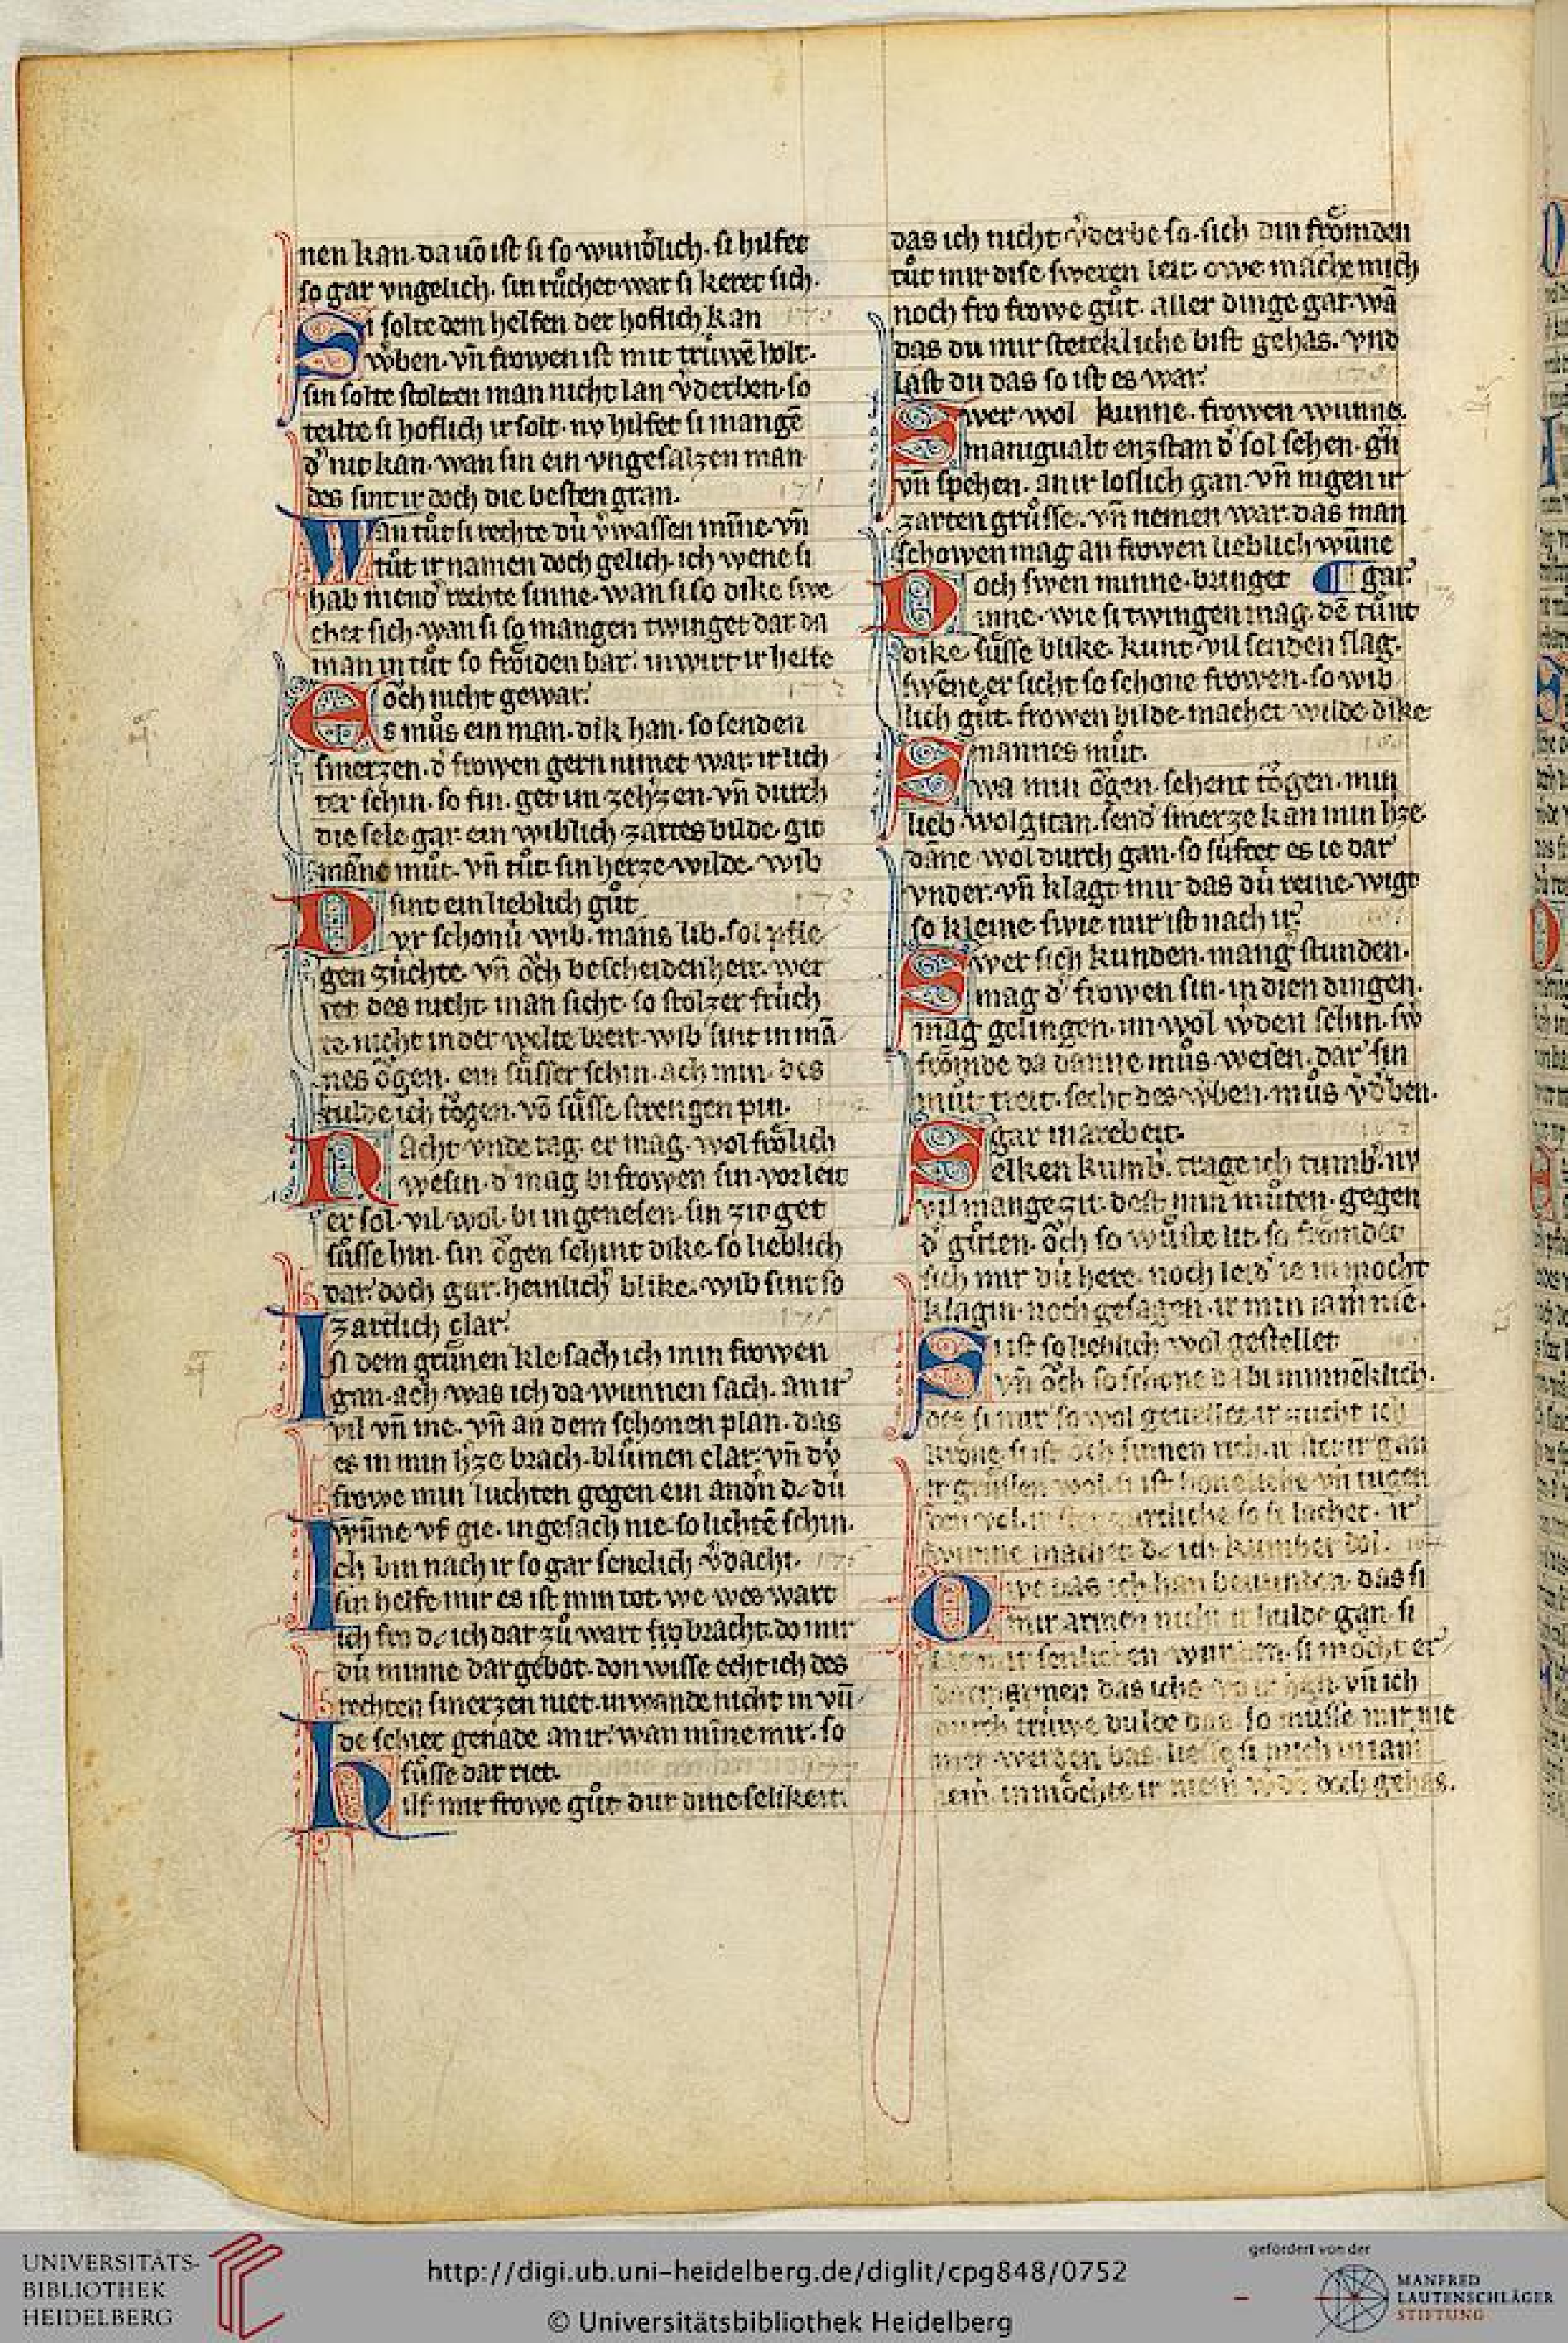 nen kan. da uō ist si so wundˀlich. si hilfet
so gar vngelich. sin růchet war si keret sich.
Si solte dem helfen der hoflich kan
wˀben. vn̄ frowen ist mit trúwē holt.
sin solte stoltzen man nicht lan vˀderben. so
teilte si hoflich ir solt. nv hilfet si mangē
dˀ nit kan. wan sin ein vngesalzen man
des sint ir doch die besten gran.
Wan tůt si rechte dú vˀwassen mīne. vn̄
tůt ir namen doch gelich. ich wene si
hab niendˀ rechte sinne. wan si so dike swe
chet sich. wan si so mangen twinget dar da
man in tůt so frōiden bar. in wirt ir helfe
ŏch nicht gewar.
Es můs ein man. dik han. so senden
smerzen. dˀ frowen gern nimet war. ir lich
ter schin. so fin. get im ze hˀzen. vn̄ durch
die sele gar. ein wiblich zartes bilde. git
māne můt. vn̄ tůt sin herze wilde. wib
sint ein lieblich gůt
Dvr schonú wib. mans lib. sol pfle
gen zúchte. vn̄ ŏch bescheidenheit. wer
ret des nicht. man sicht. so stolzer frúch
te. nicht in der welte breit. wib sint in mā
nes ŏgen. ein sůsser schin. ach min. des
dulde ich tŏgen. vō sůsse strengen pin.
Nacht vnde tag. er mag. wol frŏlich
wesin. dˀ mag bi frowen sin. vor leit
er sol. vil wol. bi in genesen. sin zit get
sůsse hin. sin ŏgen sehint dike. so lieblich
dar. doch gar. heinlichˀ blike. wib sint so
zartlich clar.
In dem grůnen kle sach ich min frowen
gan. ach was ich da wunnen sach. an ir
vil vn̄ me. vn̄ an dem schonen plan. das
es in min hˀze brach. blůmen clar. vn̄ dú
frowe min luchten gegen ein andˀn dc dú
wūne vf gie. in gesach nie. so lichtē schin.
Ich bin nach ir so gar senelich vˀdacht.
sin helfe mir es ist min tot. we wes wart
ich fro dc ich dar zů wart fro bracht. do mir
dú minne dar gebot. don wisse echt ich des
rechten smerzen niet. in wande nicht in vn̄
de schier genade an ir. wan mīne mir. so
sůsse dar riet.
Hilf mir frowe gůt dur dine selikeit.
das ich nicht vˀderbe so. sich din frŏmden
tůt mir dise sweren leit. owe mache mich
noch fro frowe gůt. aller dinge gar. wā
das du mir sterckliche bist gehas. vnd
last du das so ist es war.
Swer wol kunne. frowen wunne.
manigualt enzstan dˀ sol sehen. gn̄
vn̄ spehen. an ir loslich gan. vn̄ nigen ir
zarten grůsse. vn̄ nemen war. das man
schowen mag an frowen lieblich wūne
Doch swen minne. bringet ¶ gar.
inne. wie si twingen mag. dē tůnt
dike. sůsse blike. kunt. vil senden slag.
swēne er sicht so schone frowen. so wib
lich gůt. frowen bilde. machet wilde. dike
mannes můt.
Swa min ŏgen. sehent tŏgen. min
lieb. wol gitan. sendˀ smerze kan min hˀze
dāne wol durch gan. so súftet es ie dar
vnder. vn̄ klagt mir das dú reine. wigt
so kleine. swie mir ist nach ir.
Swer sich kunden. mang stunden.
mag dˀ frowen sin. in dien dingen.
mag gelingen. im wol wˀden schin. sw
frŏmde da danne můs wesen. dar sin
můt treit. secht des wˀben. můs vˀdˀben.
gar in arebeit.
Selken kumbˀ. trage ich tumbˀ. nv
vil mange zit. dest min můten. gegen
dˀ gůten. ŏch so wůste lit. so frŏmdet
sich mir dú here. noch leidˀ ie in mocht
klagin. noch gesagen. ir min iamˀ nie.
Si ist so lieblich wol gestellet
vn̄ ŏch so schone da bi minneklich.
des si mir so wol geuellet. ir zucht ich
krŏne. si ist ŏch sinnen rich. ir stet ir gan
ir grůssen wol. si ist honeliche vn̄ tugen
den vol. ir ster zartliche so si lachet. ir
wunne machet dc ich kumber dol.
Owe das ich han beuunden. das si
mir armen nicht ir hulde gan. si
sach mir senlichen wunden. si mocht er
barmen das ichs vō ir han. vn̄ ich
durch trúwe dulde das. so můsse mir nie
mer werden bas. liesse si mich in iam
nein. in mŏchte ir niem wˀdē doch gehas.
UNIVERSITÄTS-
BIBLIOTHEK
HEIDELBERG
http://digi.ub.uni-heidelberg.de/diglit/cpg848/0752
© Universitätsbibliothek Heidelberg
gefördert von der
MANFRED
LAUTENSCHLÄGER
STIFTUNG